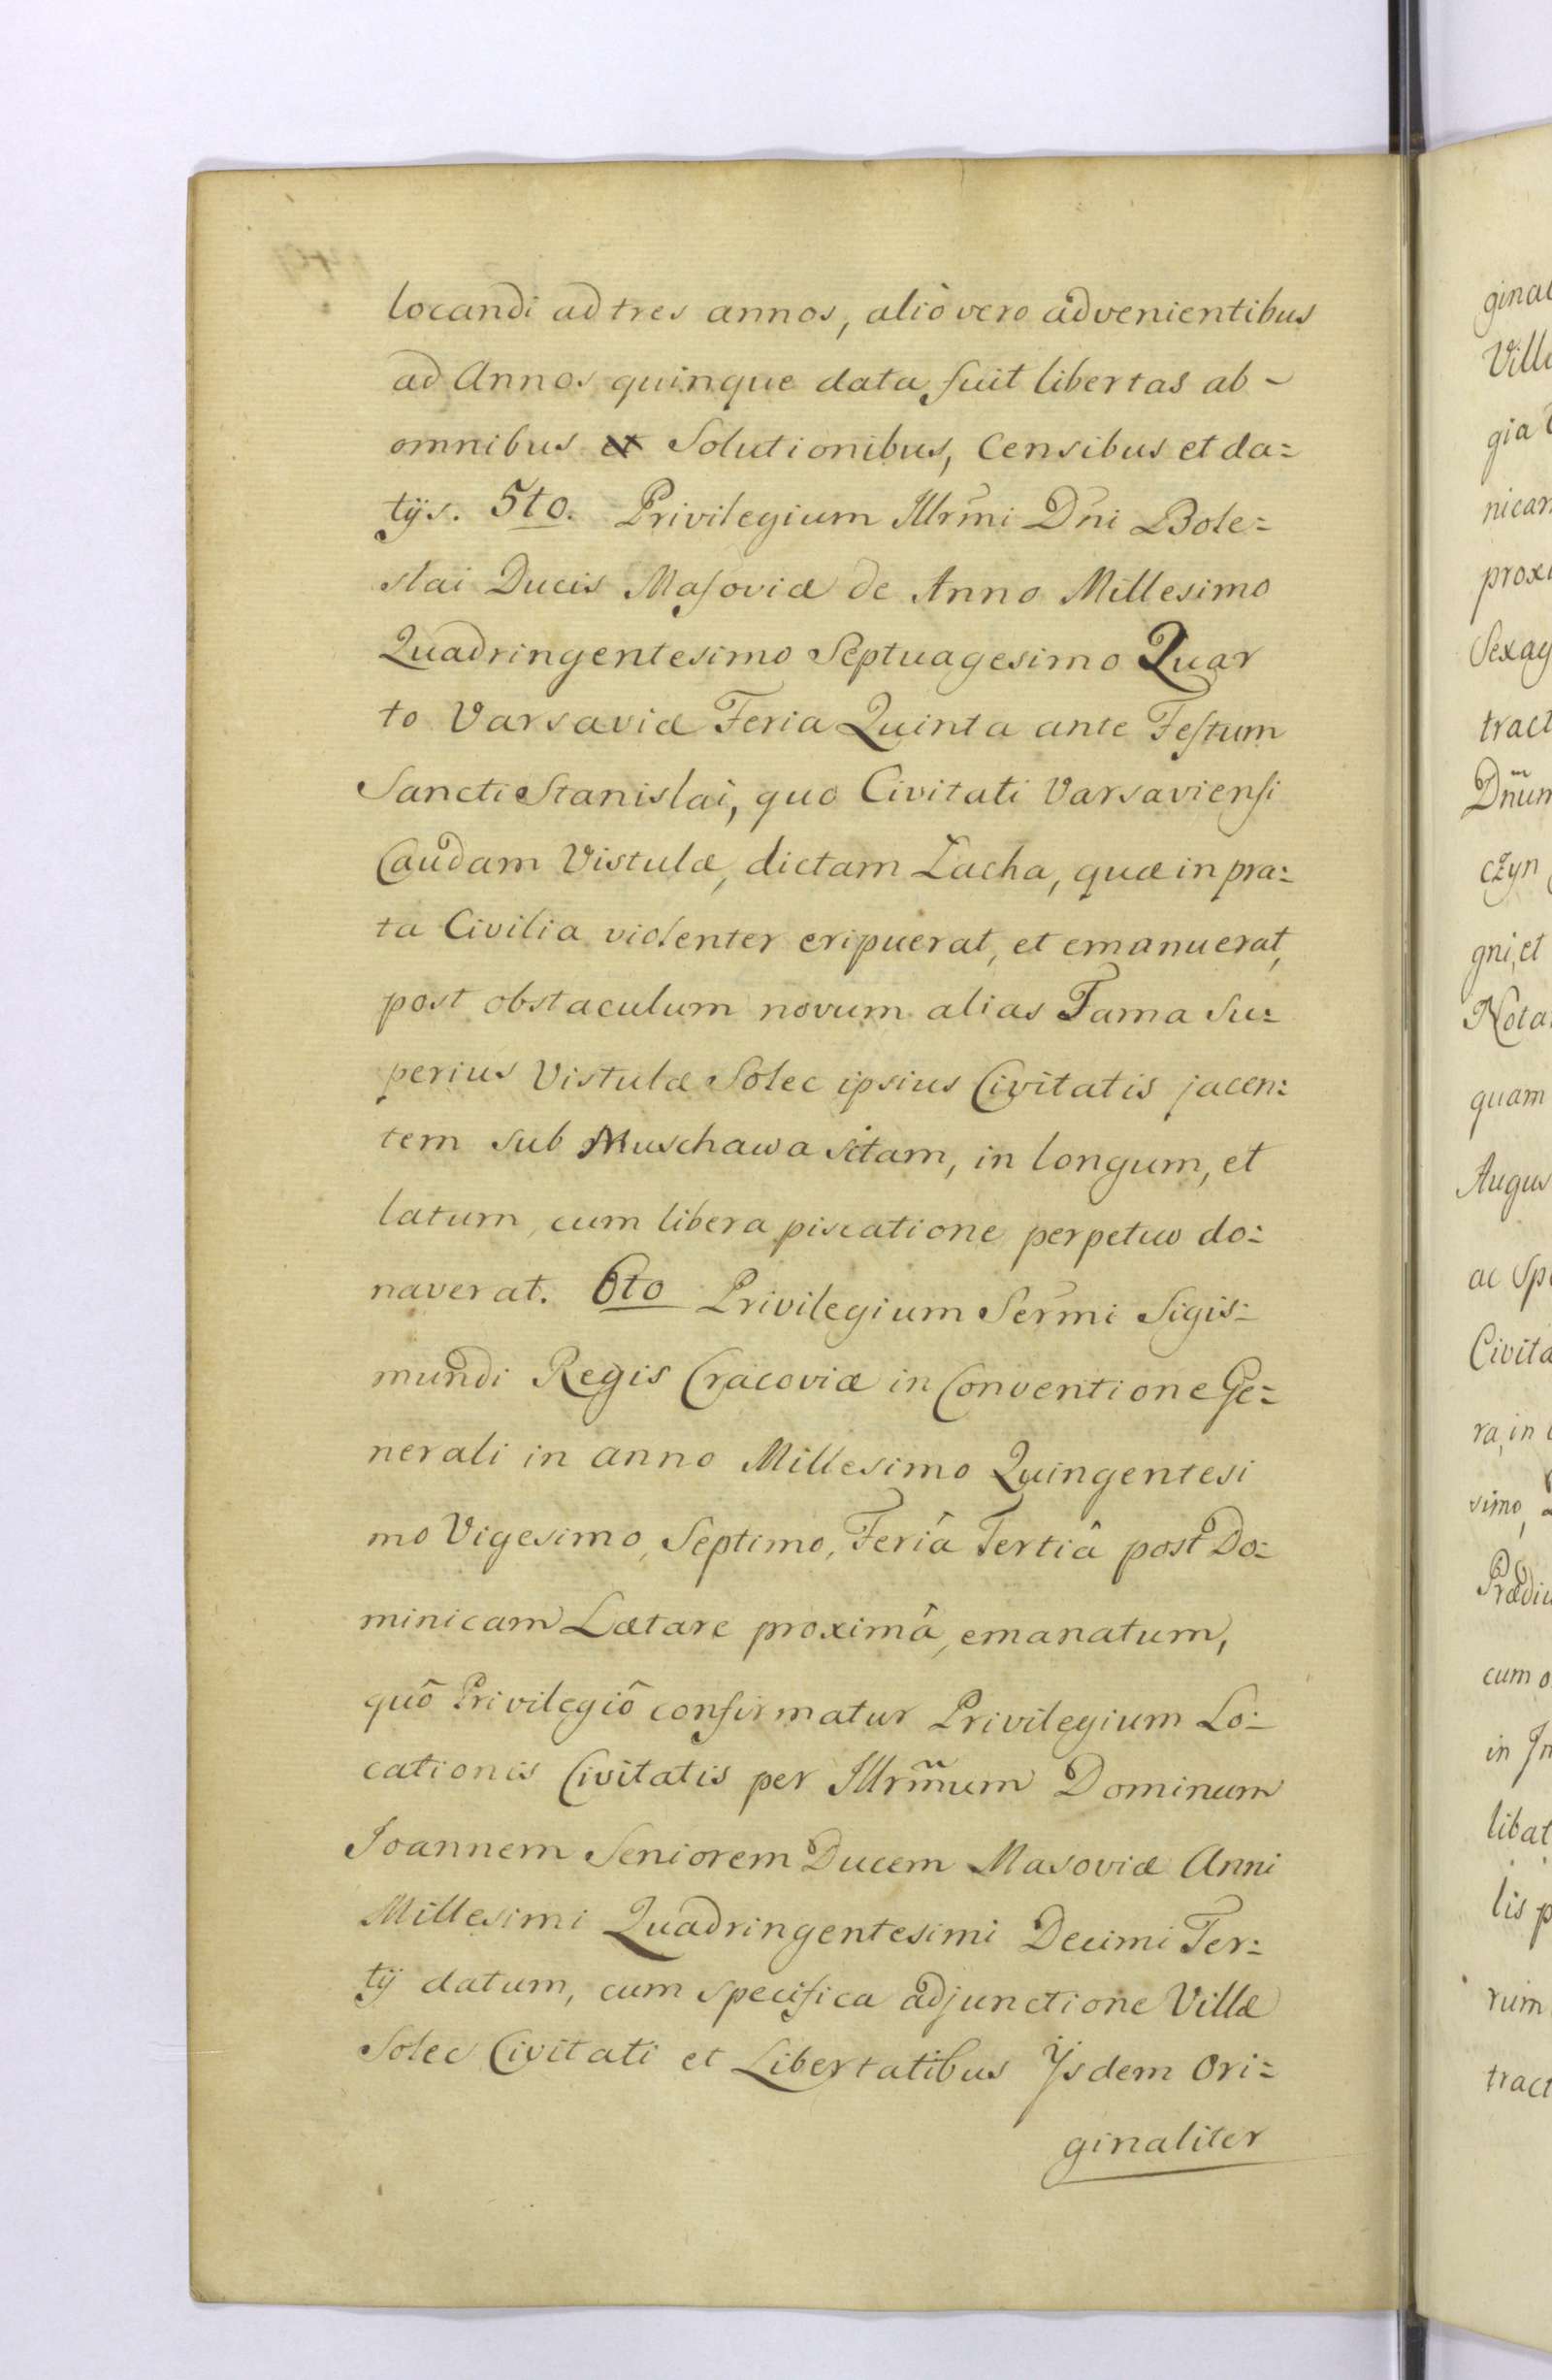 locandi ad tres annos, aliò vero advenientibus
ad Annos quinque data fuit libertas ab -
omnibus et Solutionibus, Censibus et da=
tÿs. 5to. Privilegium Illrm̃i Dñi Bole=
slai Ducis Masoviæ de Anno Millesimo
Quadringentesimo Septuagesimo Quar
to Varsaviæ Feria Quinta ante Festum
Sancti Stanislai, quo Civitati Varsaviensi
Caudam Vistulæ, dictam Łacha, quæ in pra=
ta Civilia violenter eripuerat, et emanuerat,
post obstaculum novum alias Tama Su=
perius Vistulæ Solec ipsius Civitatis jacen=
tem sub Muschawa sitam, in longum, et
latum, cum libera piscatione perpetuo do=
naverat. 6to Privilegium Serm̃i Sigis=
mundi Regis Cracoviæ in Conventione Ge=
nerali in anno Millesimo Quingentesi
mo Vigesimo, Septimo, Feriâ Tertiâ post Do=
minicam Lætare proximâ, emanatum,
quô Privilegiô confirmatur Privilegium Lo=
cationis Civitatis per Illrm̃um Dominum
Joannem Seniorem Ducem Masoviæ Anni
Millesimi Quadringentesimi Decimi Ter=
tÿ datum, cum specifica adjunctione Villæ
Solec Civitati et Libertatibus Ÿsdem Ori=
ginaliter
gina
Vill
gia
nican
prox
Sexag
tract
Dñum
czyn
gni, et
Nota
quam
Augus
ac Sp
Civita
ra, in
simo,
Prædi
cum o
in Jn
libat
lis p
rum
tract